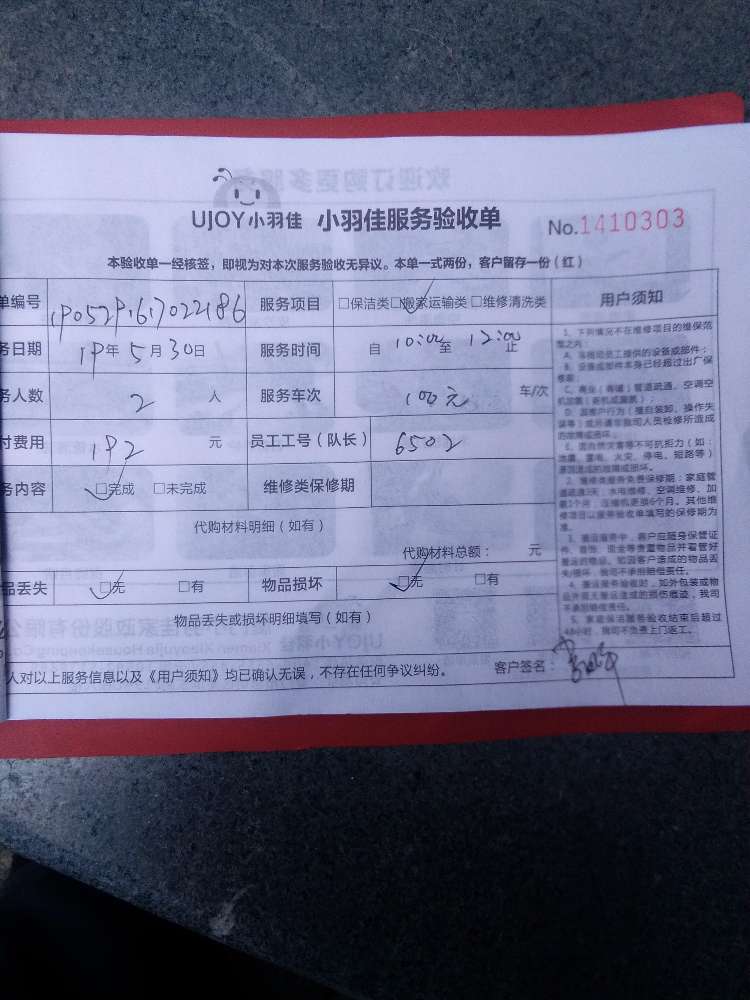 UJOY小羽佳 小羽佳服务验收单 No.1410303
本验收单一经核签，即视为对本次服务验收无异议。本单一式两份，客户留存一份（红）
单编号 1905291617022186 服务项目 □保洁类 □搬家运输类 □维修清洗类 用户须知
务日期 19年5月30日 服务时间 自 10:00 至 12:00 止
务人数 2 人 服务车次 100元 车/次
付费用 192 元 员工工号（队长） 6502
务内容 □完成 □未完成 维修类保修期
代购材料明细（如有）
代购材料总额： 元
品丢失 □无 □有 物品损坏 □无 □有
物品丢失或损坏明细填写（如有）
人对以上服务信息以及《用户须知》均已确认无误，不存在任何争议纠纷。 客户签名：
1、下列情况不在维修项目的维保范
围之内：
A、非我司员工提供的设备或部件；
B、设备或部件本身已经超过出厂保
D、因客户行为（擅自装卸、操作失
误等）或非请非我司人员检修所造成
的故障或损坏。
E、因自然灾害等不可抗拒力（如：
地震、雷电、火灾、停电、短路等）
原因造成的故障或损坏。
2、维修类服务免费保修期：家庭管
项目以服务验收单填写的保修期为
准。
3、搬运服务中，客户应随身保管证
件、首饰、现金等贵重物品并看管好
搬运的物品。如因客户造成的物品丢
失/损坏，我司不承担赔偿责任。
4、搬运服务验收时，如外包装或物
品外观无搬运造成的损伤痕迹，我司
不承担赔偿责任。
5、家庭保洁服务验收结束后超过
48小时，我司不负责上门返工。